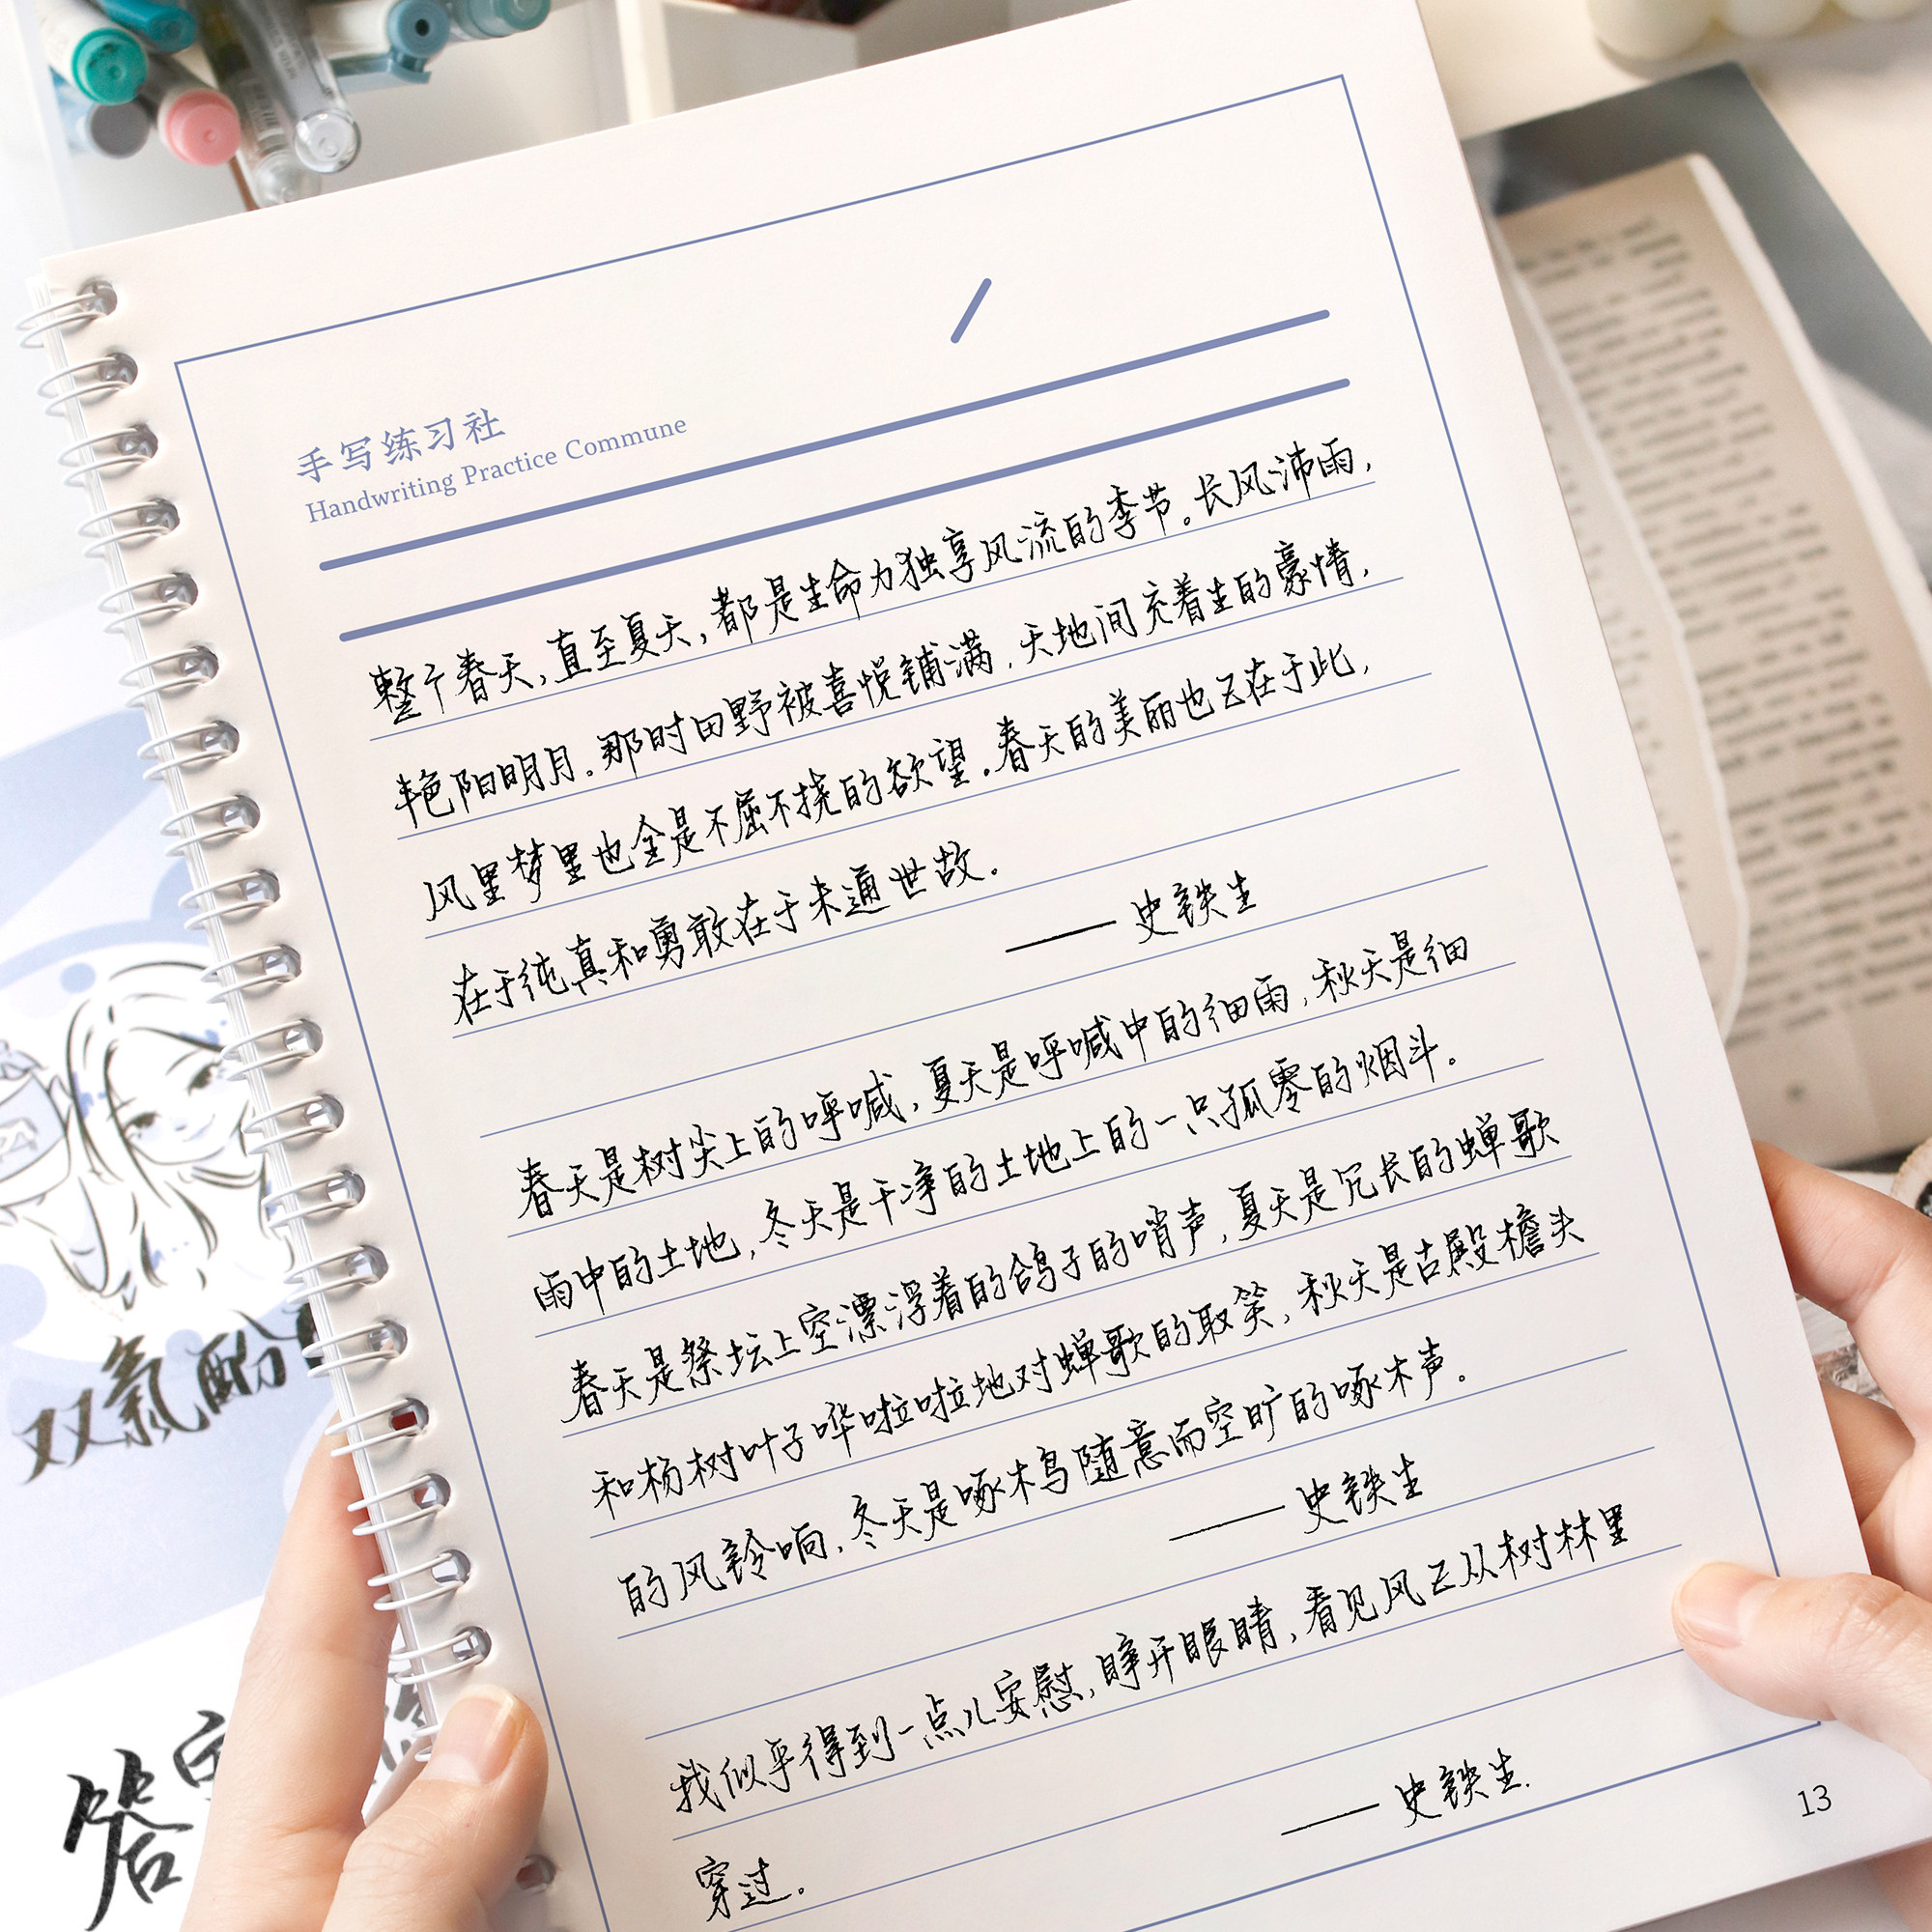 手写练习社
Handwriting Practice Commune
整个春天,直至夏天,都是生命力独享风流的季节。长风沛雨,
艳阳明月。那时田野被喜悦铺满,天地间充着生的豪情,
风里梦里也全是不屈不挠的欲望。春天的美丽也正在于此,
在于纯真和勇敢在于未通世故。
——史铁生
春天是树尖上的呼喊,夏天是呼喊中的细雨,秋天是细
雨中的土地,冬天是干净的土地上的一只孤零的烟斗。
春天是祭坛上空漂浮着的鸽子的哨声,夏天是冗长的蝉歌
和杨树叶子哗啦啦地对蝉歌的取笑,秋天是古殿檐头
的风铃响,冬天是啄木鸟随意而空旷的啄木声。
——史铁生
我似乎得到一点儿安慰,睁开眼睛,看见风正从树林里
穿过。
——史铁生.
13
双氧酚
答